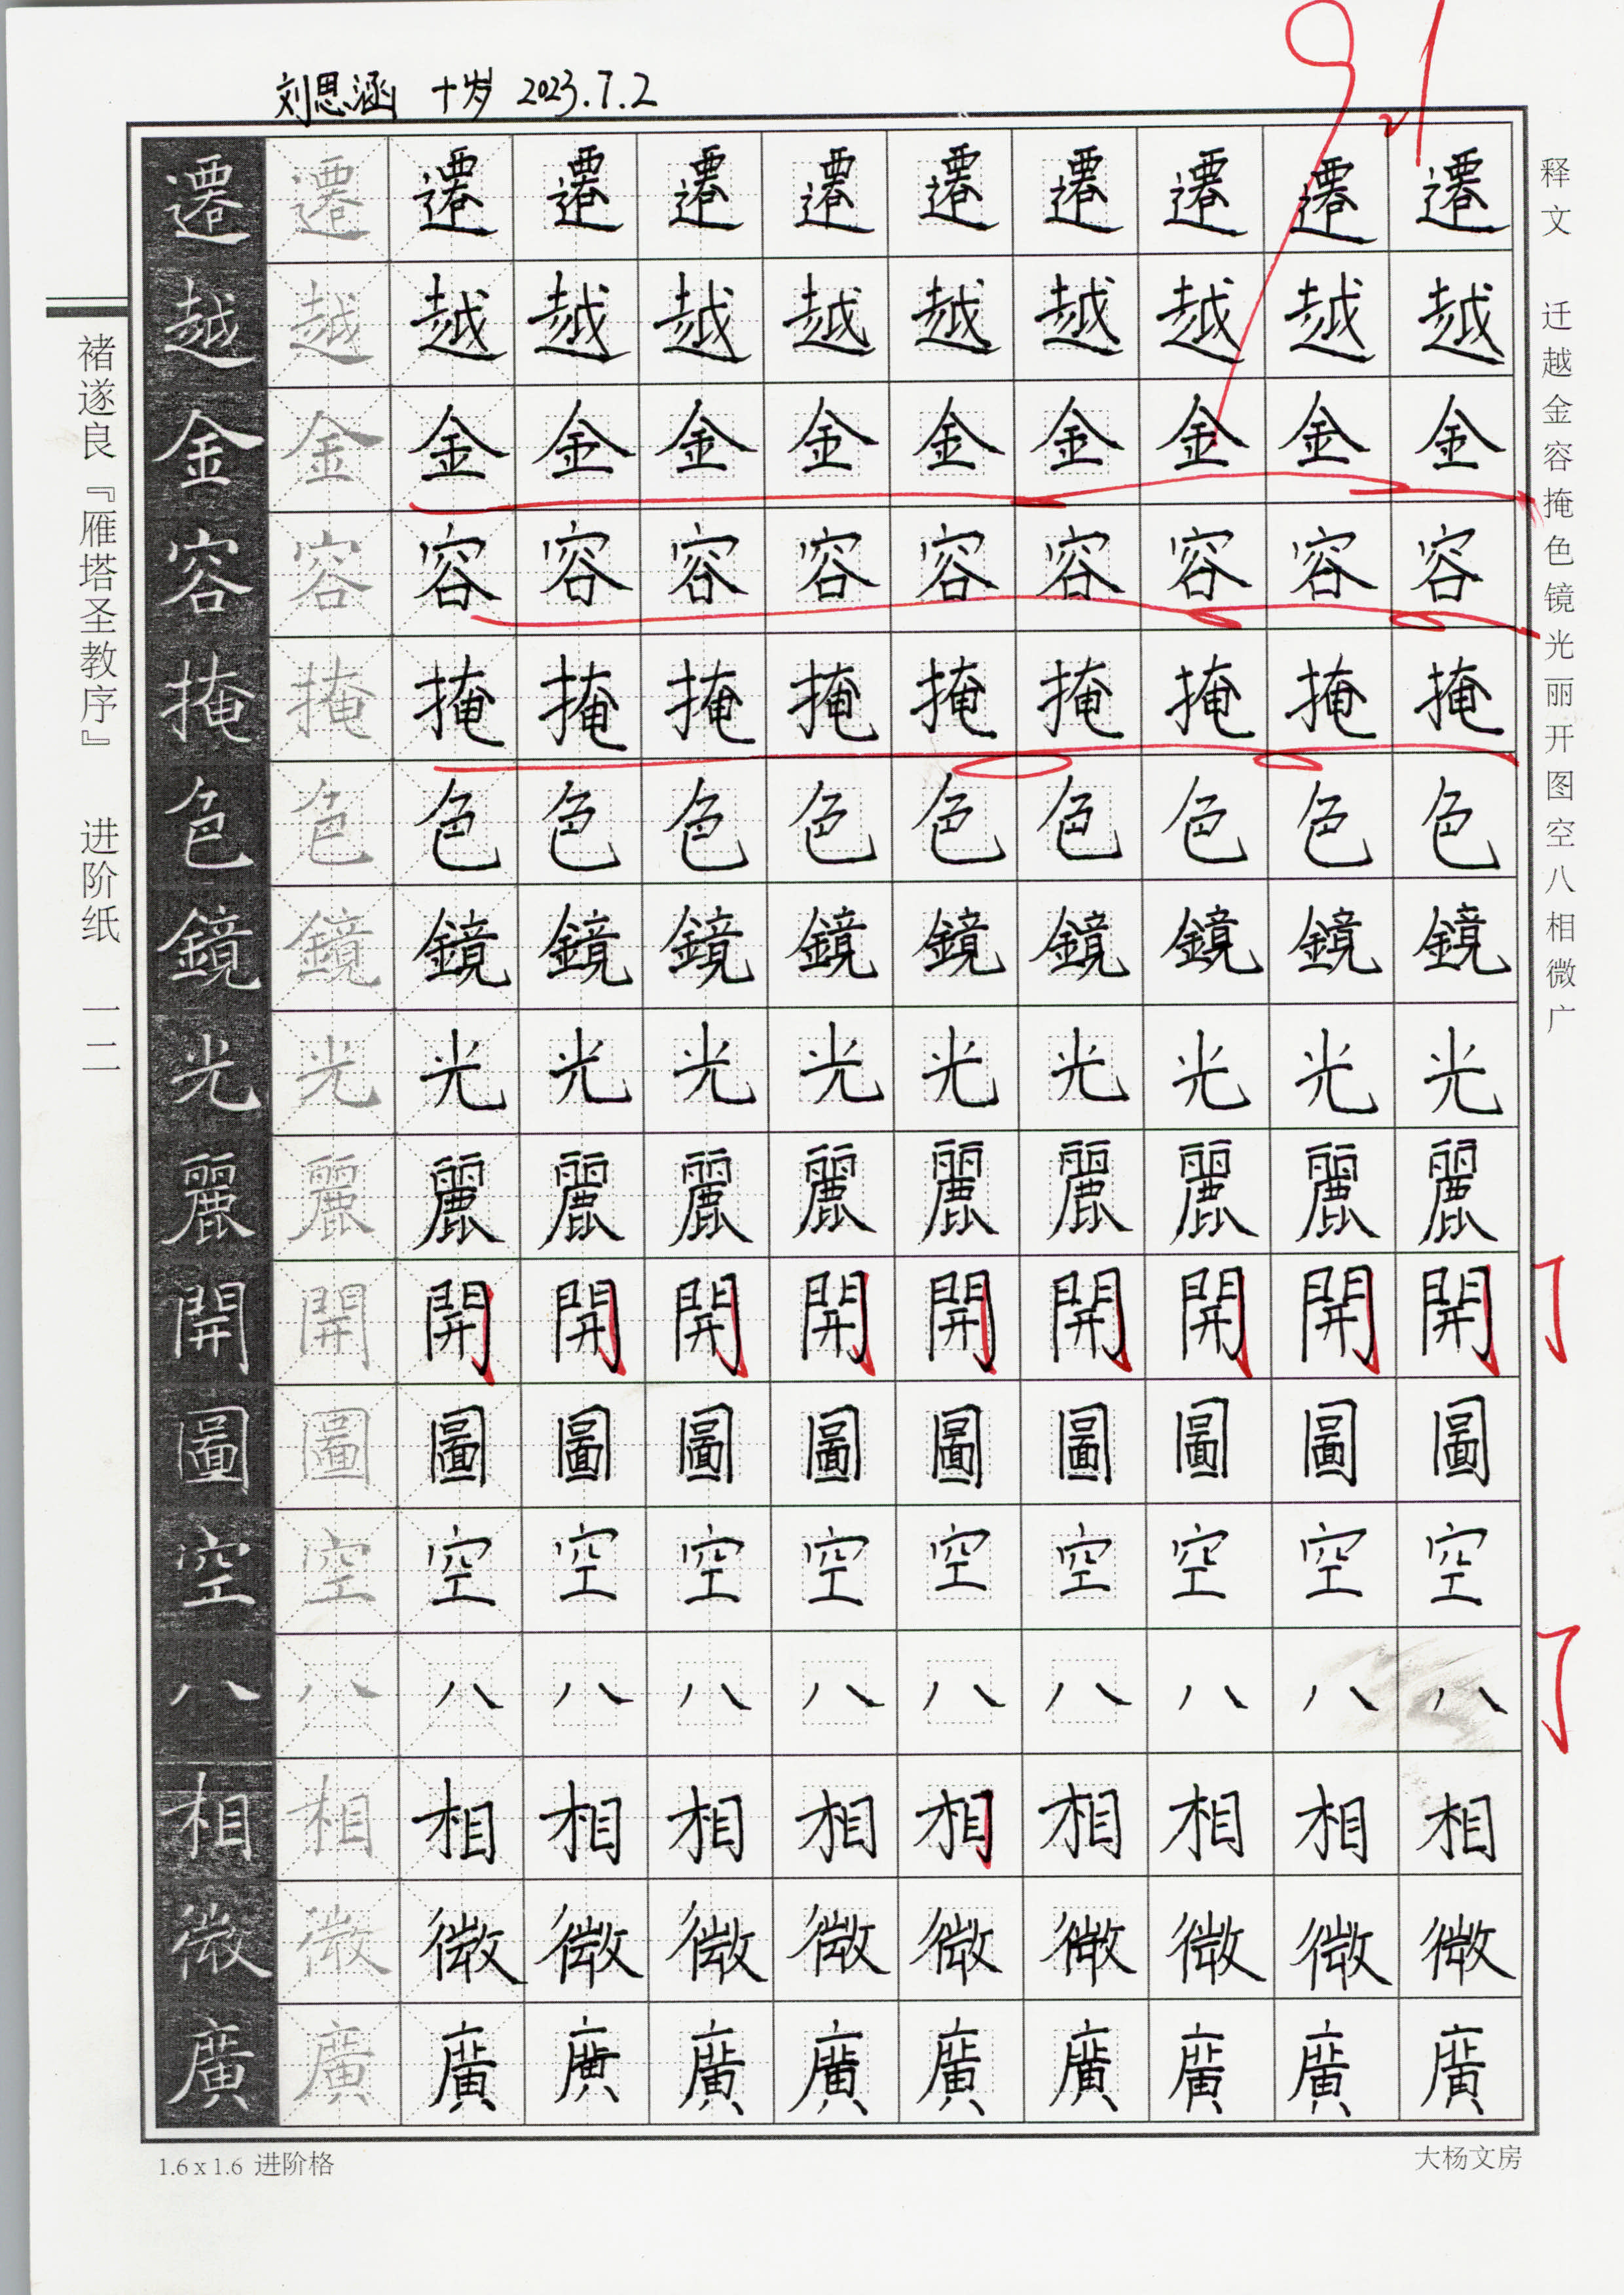 刘思涵 十岁 2023.7.2
91
遷 遷 遷 遷 遷 遷 遷 遷 遷 遷 遷
越 越 越 越 越 越 越 越 越 越 越
金 金 金 金 金 金 金 金 金 金 金
容 容 容 容 容 容 容 容 容 容 容
掩 掩 掩 掩 掩 掩 掩 掩 掩 掩 掩
色 色 色 色 色 色 色 色 色 色 色
鏡 鏡 鏡 鏡 鏡 鏡 鏡 鏡 鏡 鏡 鏡
光 光 光 光 光 光 光 光 光 光 光
麗 麗 麗 麗 麗 麗 麗 麗 麗 麗 麗
開 開 開 開 開 開 開 開 開 開 開
圖 圖 圖 圖 圖 圖 圖 圖 圖 圖 圖
空 空 空 空 空 空 空 空 空 空 空
八 八 八 八 八 八 八 八 八 八 八
相 相 相 相 相 相 相 相 相 相 相
微 微 微 微 微 微 微 微 微 微 微
廣 廣 廣 廣 廣 廣 廣 廣 廣 廣 廣
释文 迁越金容掩色镜光丽开图空八相微广
褚遂良『雁塔圣教序』 进阶纸 一二
1.6 x 1.6 进阶格
大杨文房